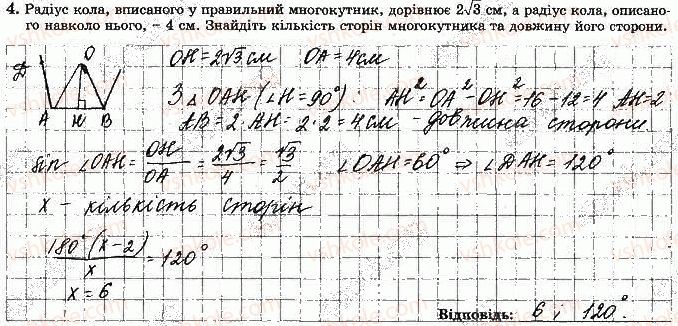 4. Радіус кола, вписаного у правильний многокутник, дорівнює 2√3 см, а радіус кола, описано-
го навколо нього, – 4 см. Знайдіть кількість сторін многокутника та довжину його сторони.
OH = 2√3 см   OA = 4 см
Д O A H B
З △ OAH (∠H = 90°): AH² = OA² - OH² = 16 - 12 = 4  AH = 2
AB = 2 · AH = 2 · 2 = 4 см - довжина сторони
sin ∠OAH = OH/OA = 2√3/4 = √3/2   ∠OAH = 60° ⇒ ∠ДAH = 120°
x - кількість сторін
180°(x-2)/x = 120°
x = 6
Відповідь: 6 і 120°.